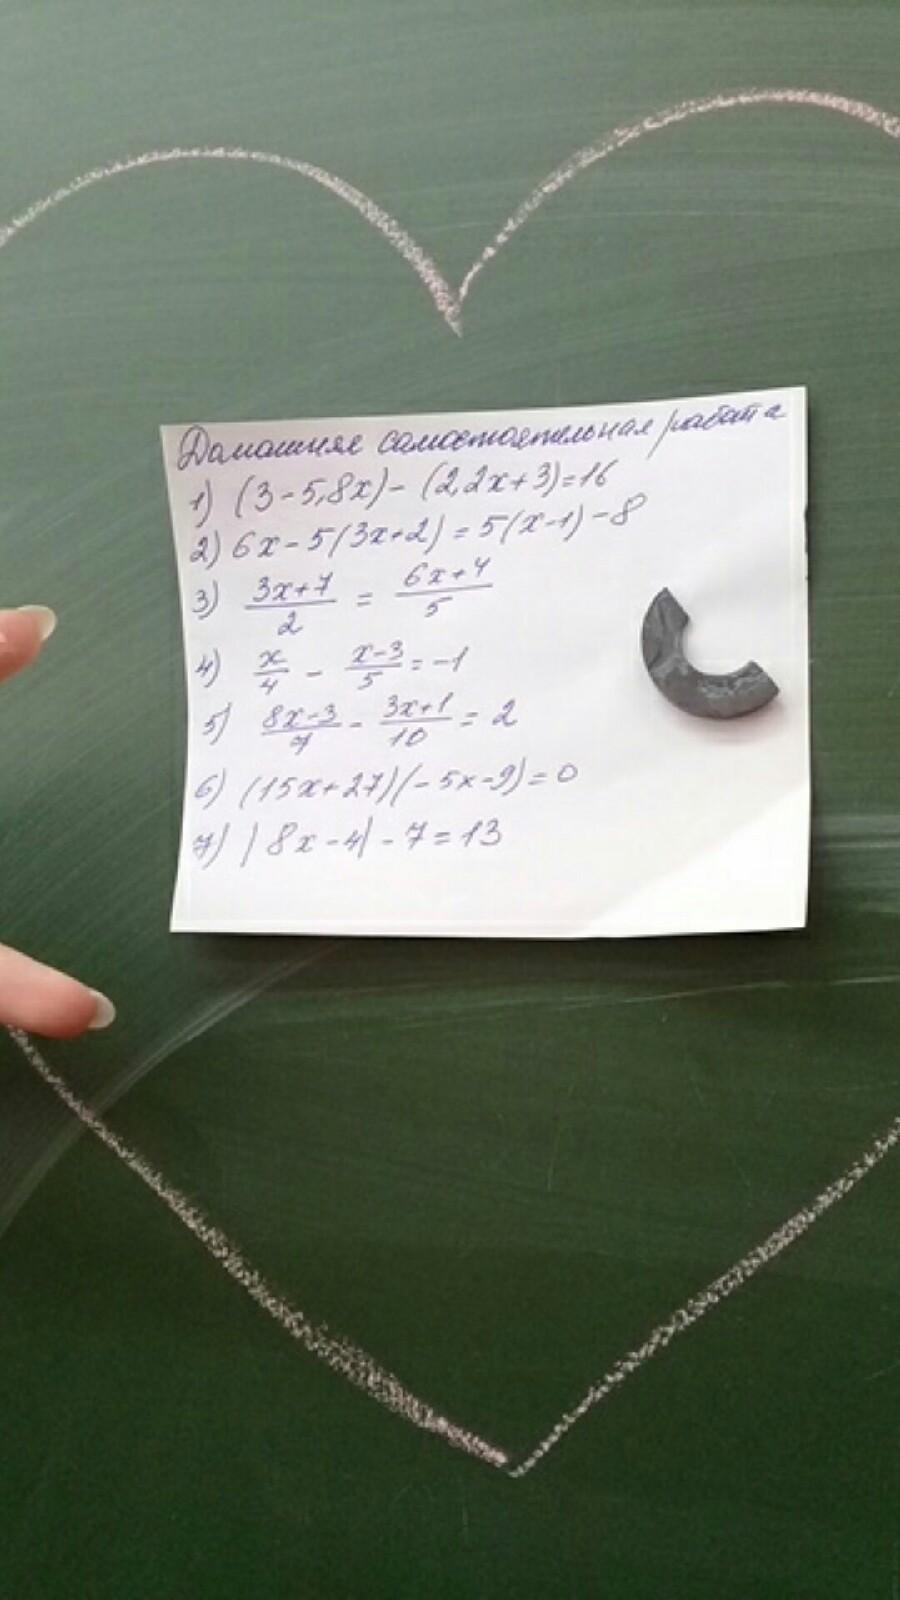 Домашняя самостоятельная работа
1) (3-5,8x)-(2,2x+3)=16
2) 6x-5(3x+2)=5(x-1)-8
3) (3x+7)/2 = (6x+4)/5
4) x/4 - (x-3)/5 = -1
5) (8x-3)/7 - (3x+1)/10 = 2
6) (15x+27)(-5x-9)=0
7) |8x-4|-7=13